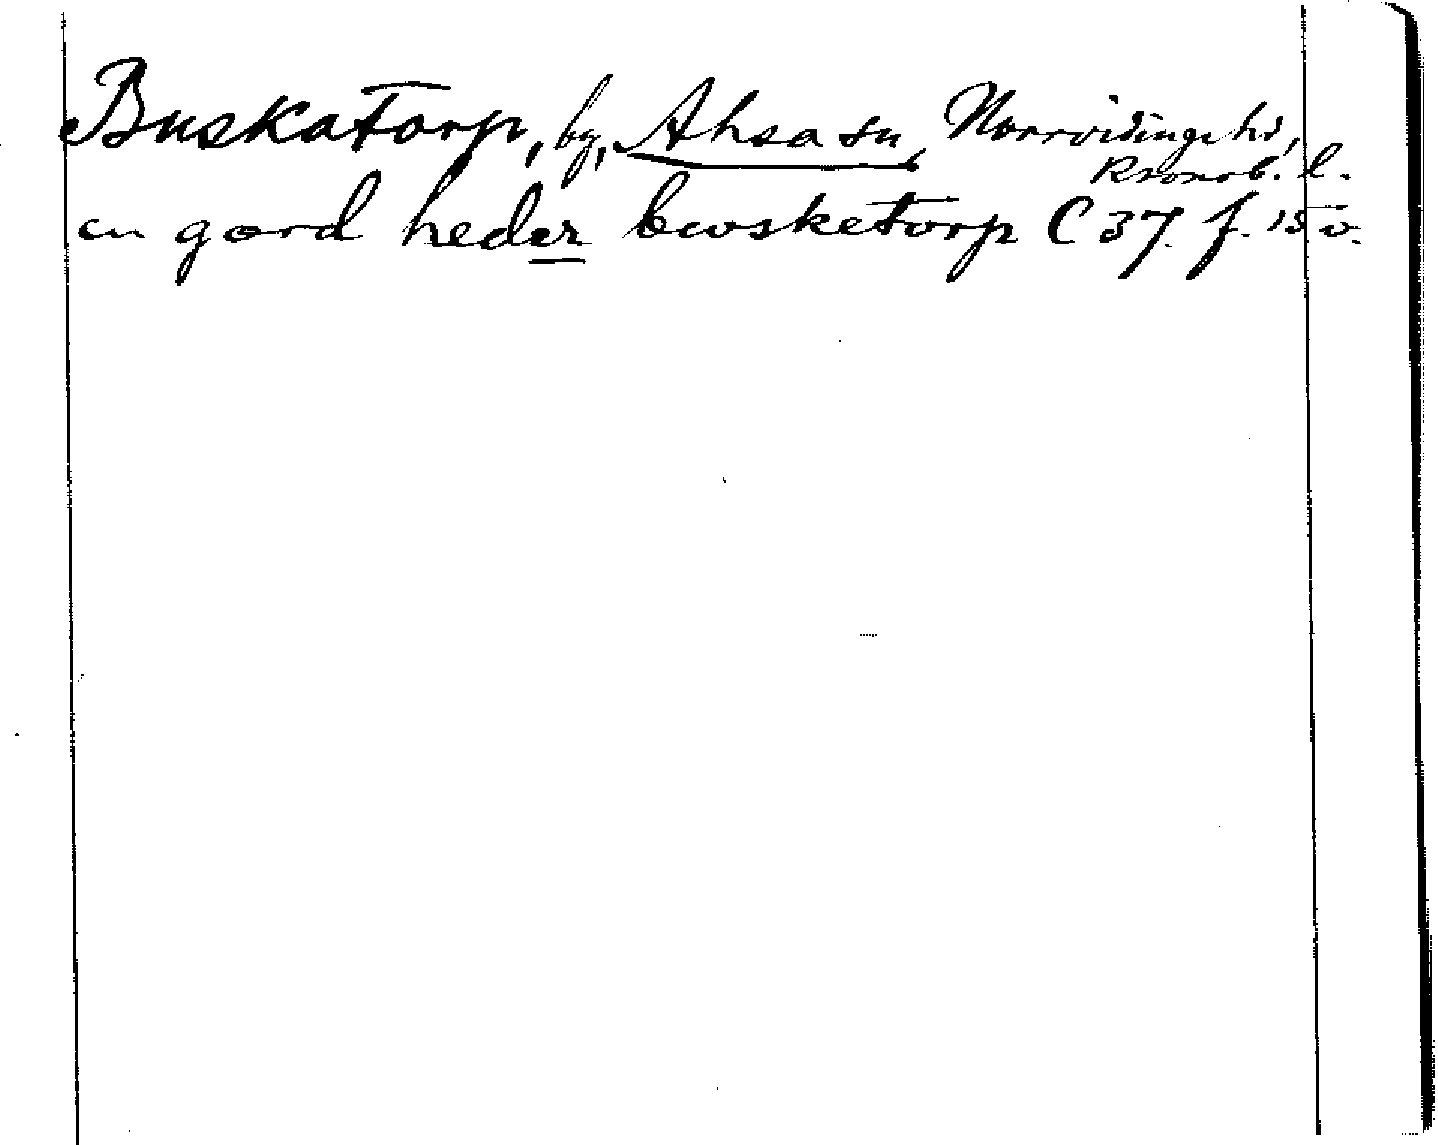 Buskatorp, by, Ahsa sn, Norrvidinge hd,
Kronob. l.
en gord heder bwsketorp C 37. f. 15 v.